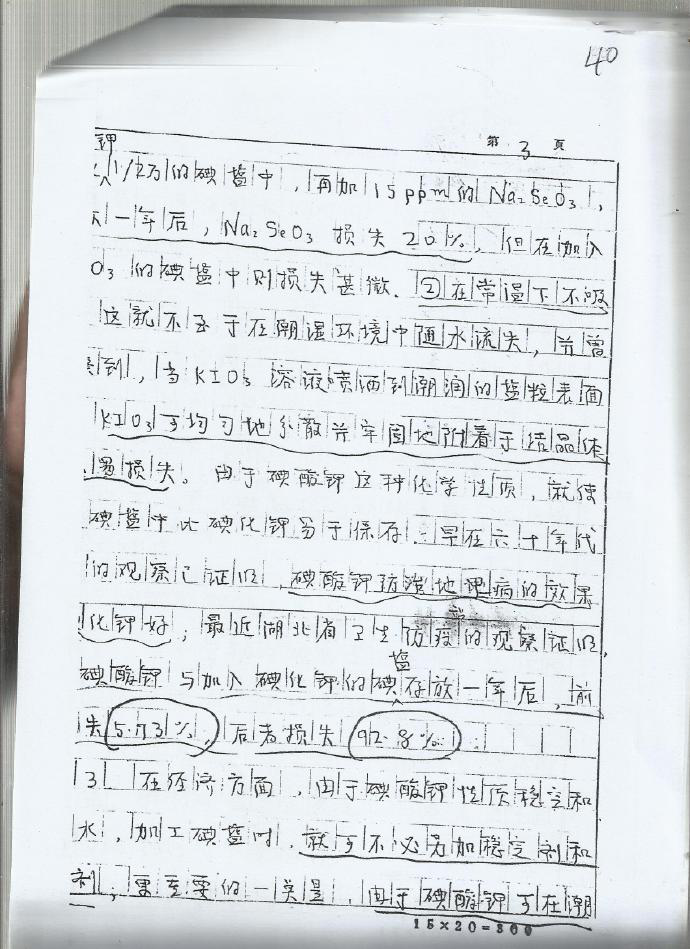 40
第 3 頁
钾
1/2万的碘盐中,再加15ppm的Na₂SeO₃,
一年后,Na₂SeO₃损失20%,但在加入
O₃的碘盐中则损失甚微.②在常温下不吸
这就不至于在潮湿环境中随水流失,并曾
到,当KIO₃溶液喷洒到潮润的盐粒表面
KIO₃可均匀地分散并牢固地附着于结晶体
易损失。由于碘酸钾这种化学性质,就使
碘盐中比碘化钾易于保存.早在六十年代
的观察已证明,碘酸钾防地甲病的效果
化钾好;最近湖北省卫生防的观察证明,
碘酸钾与加入碘化钾的碘盐存放一年后,前
失5.73%,后者损失92.8%.
3 在经济方面,由于碘酸钾性质稳定和
水,加工碘盐时,就可不必另加稳定剂和
剂;更重要的一点是,由于碘酸钾可在潮
15×20=300